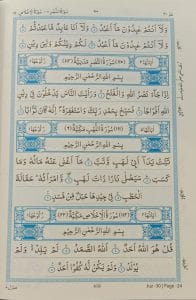 وَلَآ اَنْتُمْ عٰبِدُوْنَ مَآ اَعْبُدُ وَلَآ اَنَا عَابِدٌ مَّا عَبَدْتُّمْ
وَلَآ اَنْتُمْ عٰبِدُوْنَ مَآ اَعْبُدُ لَكُمْ دِيْنُكُمْ وَلِيَ دِيْنِ
سُوْرَةُ النَّصْرِ
بِسْمِ اللّٰهِ الرَّحْمٰنِ الرَّحِيْمِ
اِذَا جَآءَ نَصْرُ اللّٰهِ وَالْفَتْحُ وَرَاَيْتَ النَّاسَ يَدْخُلُوْنَ فِيْ دِيْنِ
اللّٰهِ اَفْوَاجًا فَسَبِّحْ بِحَمْدِ رَبِّكَ وَاسْتَغْفِرْهُ اِنَّهٗ كَانَ تَوَّابًا
سُوْرَةُ اللَّهَبِ
بِسْمِ اللّٰهِ الرَّحْمٰنِ الرَّحِيْمِ
تَبَّتْ يَدَآ اَبِيْ لَهَبٍ وَّتَبَّ مَآ اَغْنٰى عَنْهُ مَالُهٗ وَمَا
كَسَبَ سَيَصْلٰى نَارًا ذَاتَ لَهَبٍ وَّامْرَاَتُهٗ حَمَّالَةَ
الْحَطَبِ فِيْ جِيْدِهَا حَبْلٌ مِّنْ مَّسَدٍ
سُوْرَةُ الْاِخْلَاصِ
بِسْمِ اللّٰهِ الرَّحْمٰنِ الرَّحِيْمِ
قُلْ هُوَ اللّٰهُ اَحَدٌ اَللّٰهُ الصَّمَدُ لَمْ يَلِدْ وَلَمْ
يُوْلَدْ وَلَمْ يَكُنْ لَّهٗ كُفُوًا اَحَدٌ
Juz -30 | Page -24